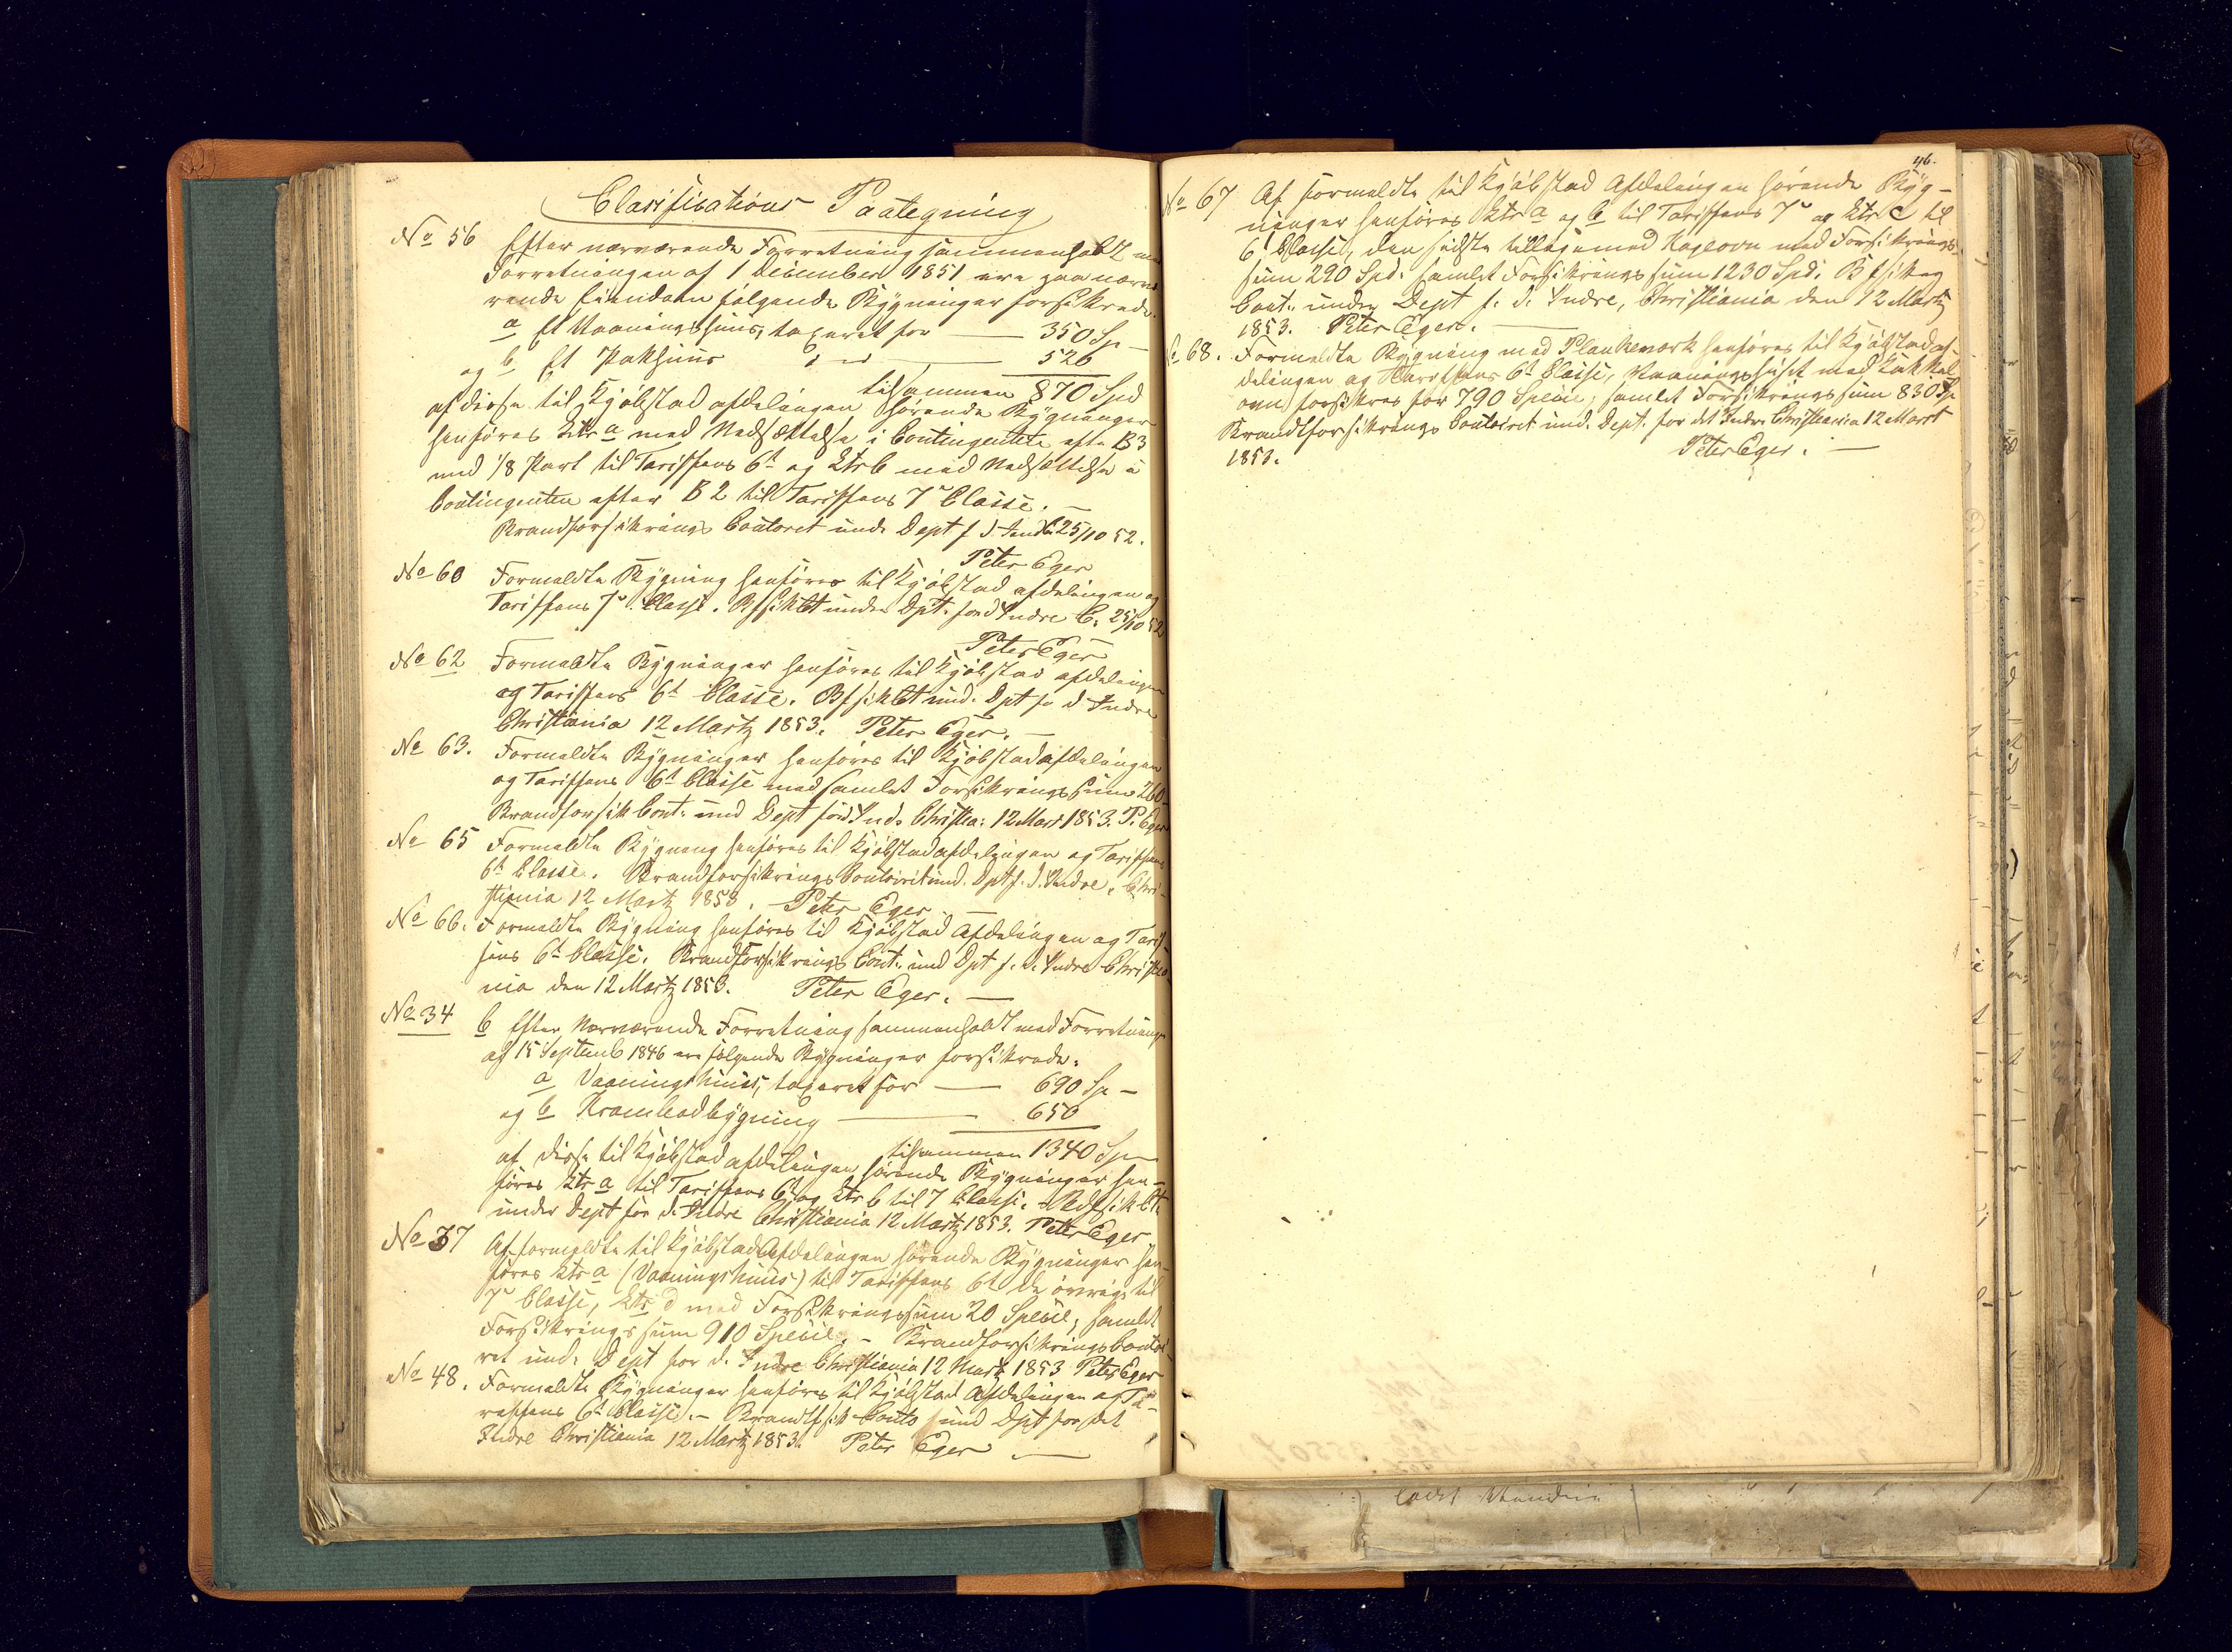 Clasifications Paategning
No 56 Efter nærværende Forretning sammenholdt med
Forretningen af 1 December 1851 ere paa nærvæ
rende Eiendom følgende Bygninger forsikrede.
a Et Vaaningshuus, taxeret for — 350 Sp —
og b Et Pakhuus do — 520
tilsammen 870 Spd
af disse til Kjøbstad afdelingen hørende Bygninger
henføres Ltr a med Nedsættelse i Contingentet efter B3
med 1/8 Part til Tariffens 6t og Ltr b med Nedsættelse i
Contingenten efter B 2 til Tariffens 7de Classe. —
Brandforsikrings Contoret unde Dept f. d. Indre 25/10 52.
Peter Eger
No 60 Formeldte Bygning henføres til Kjøbstad afdelingen og
Tariffens 7de Classe. Bfsik Ct under Dpt. for d Indre C. 25/10 52
Peter Eger
No 62 Formeldte Bygninger henføres til Kjøbstad afdelingen
og Tariffens 6t Classe. Bfsik Ct und. Dpt fo d Indre
Christiania 12 Martz 1853. Peter Eger. —
No 63. Formeldte Bygninger henføres til Kjøbstadafdelingen
og Tariffens 6t Classe med samlet Forsikringssum 260
Brandforsik Cont. und Dept for d Ind. Christia: 12 Mart 1853. P. Eger
No 65 Formeldte Bygning henføres til Kjøbstadafdelingen og Tariffens
6t Classe. Brandforsikrings Contoiret und. Dpt f. d. Indre. Chri-
stiania 12 Martz 1853. Peter Eger
No 66. Formeldte Bygning henføres til Kjøbstad Afdelingen og Tarif-
fens 6t Classe. Brandforsikrings Cont. und Dpt f. d. Indre Christia
nia den 12 Martz 1853. Peter Eger. —
No 34 b Efter Nærværende Forretning sammenholdt med Forretning
af 15 Septemb 1846 ere følgende Bygninger forsikrede.
a Vaaningshuus, taxeret for — 690 Sp —
og b Krambodbygning — 650
tilsammen 1340 Sp
af disse til Kjøbstadafdelingen hørende Bygninger hen-
føres Ltr a til Tariffens 6t og Ltr b til 7 Classe. Bdfsik Ct.
under Dept for d. Indre Christiania 12 Martz 1853. Peter Eger
No 37 Af formeldte til Kjøbstad Afdelingen hørende Bygninger hen-
føres Ltr a (Vaaningshuus) til Tariffens 6t de øvrige til
7de Classe, Ltr d med Forsikringssum 20 Specie, samlet
Forsikringssum 910 Specie. — Brandforsikrings Contoi-
ret und. Dept for d. Indre Christiania 12 Mart 1853 Peter Eger
No 48. Formeldte Bygninger henføres til Kjøbstad Afdelingen og Ta-
riffens 6t Classe. — Brandtfsik Conto und Dpt for det
Indre Christiania 12 Martz 1853. Peter Eger —
46.
No 67 Af formeldte til Kjøbstad Afdelingen hørende Byg-
ninger henføres Ltr a og b til Tariffens 7de og Ltr c til
6t Classe, den sidste tilligemed Kageovn med Forsikrings-
sum 290 Spd. samlet Forsikringssum 1230 Spd. Bfsikrg
Cont. under Dept f. d. Indre, Christiania den 12 Martz
1853. Peter Eger. —
No 68. Formeldte Bygning med Plankeværk henføres til Kjøbstadaf-
delingen og Tariffens 6t Classe, Vaaningshuset med Kakkel
ovn forsikres for 790 Specie, samlet Forsikringssum 830 Sp
Brandtforsikrings Contoiret und. Dept. for det Indre Christiania 12 Mart
1853. Peter Eger. —